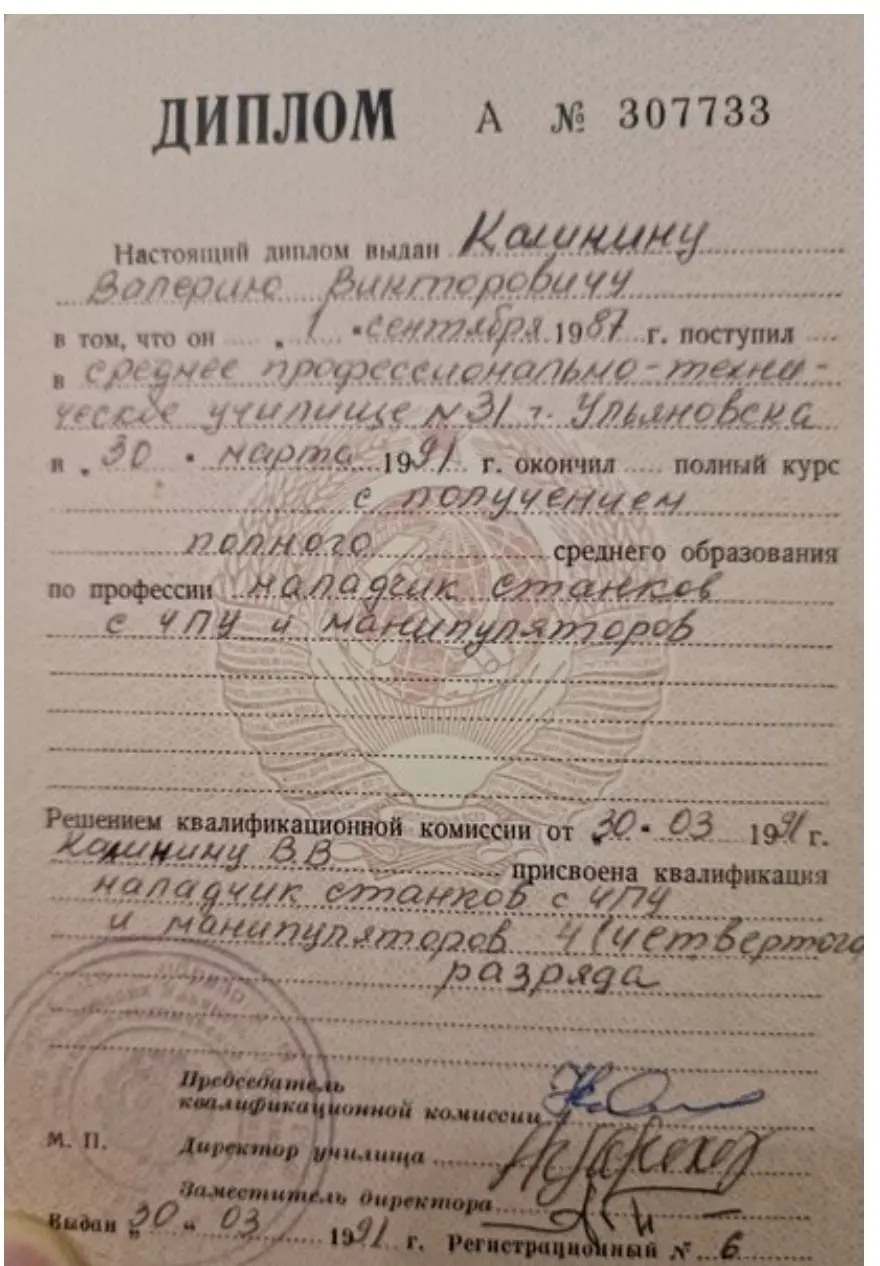 ДИПЛОМ А № 307733
Настоящий диплом выдан Калинину
Валерию Викторовичу
в том, что он „ 1 " сентября 1987 г. поступил
в среднее профессионально-техни-
ческое училище №31 г. Ульяновска
и „ 30 " марта 1991 г. окончил полный курс
с получением
полного среднего образования
по профессии наладчик станков
с ЧПУ и манипуляторов
Решением квалификационной комиссии от „30" 03 1991 г.
Калинину В.В присвоена квалификация
наладчик станков с ЧПУ
и манипуляторов 4 (четвертого
разряда
Председатель
квалификационной комиссии
М. П. Директор училища
Заместитель директора
Выдан „30 " 03 1991 г. Регистрационный № 6